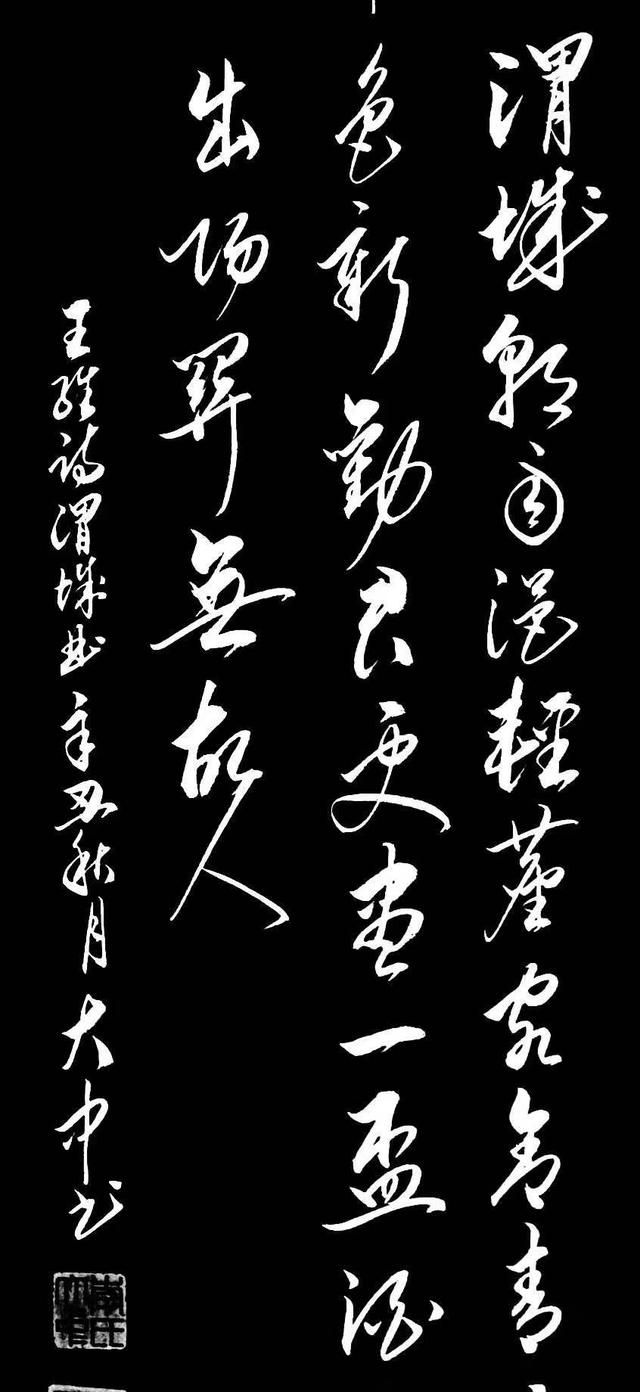 渭城朝雨浥輕塵客舍青
色新勸君更盡一盃酒
出陽關無故人
王維詩渭城曲辛丑秋月大中书